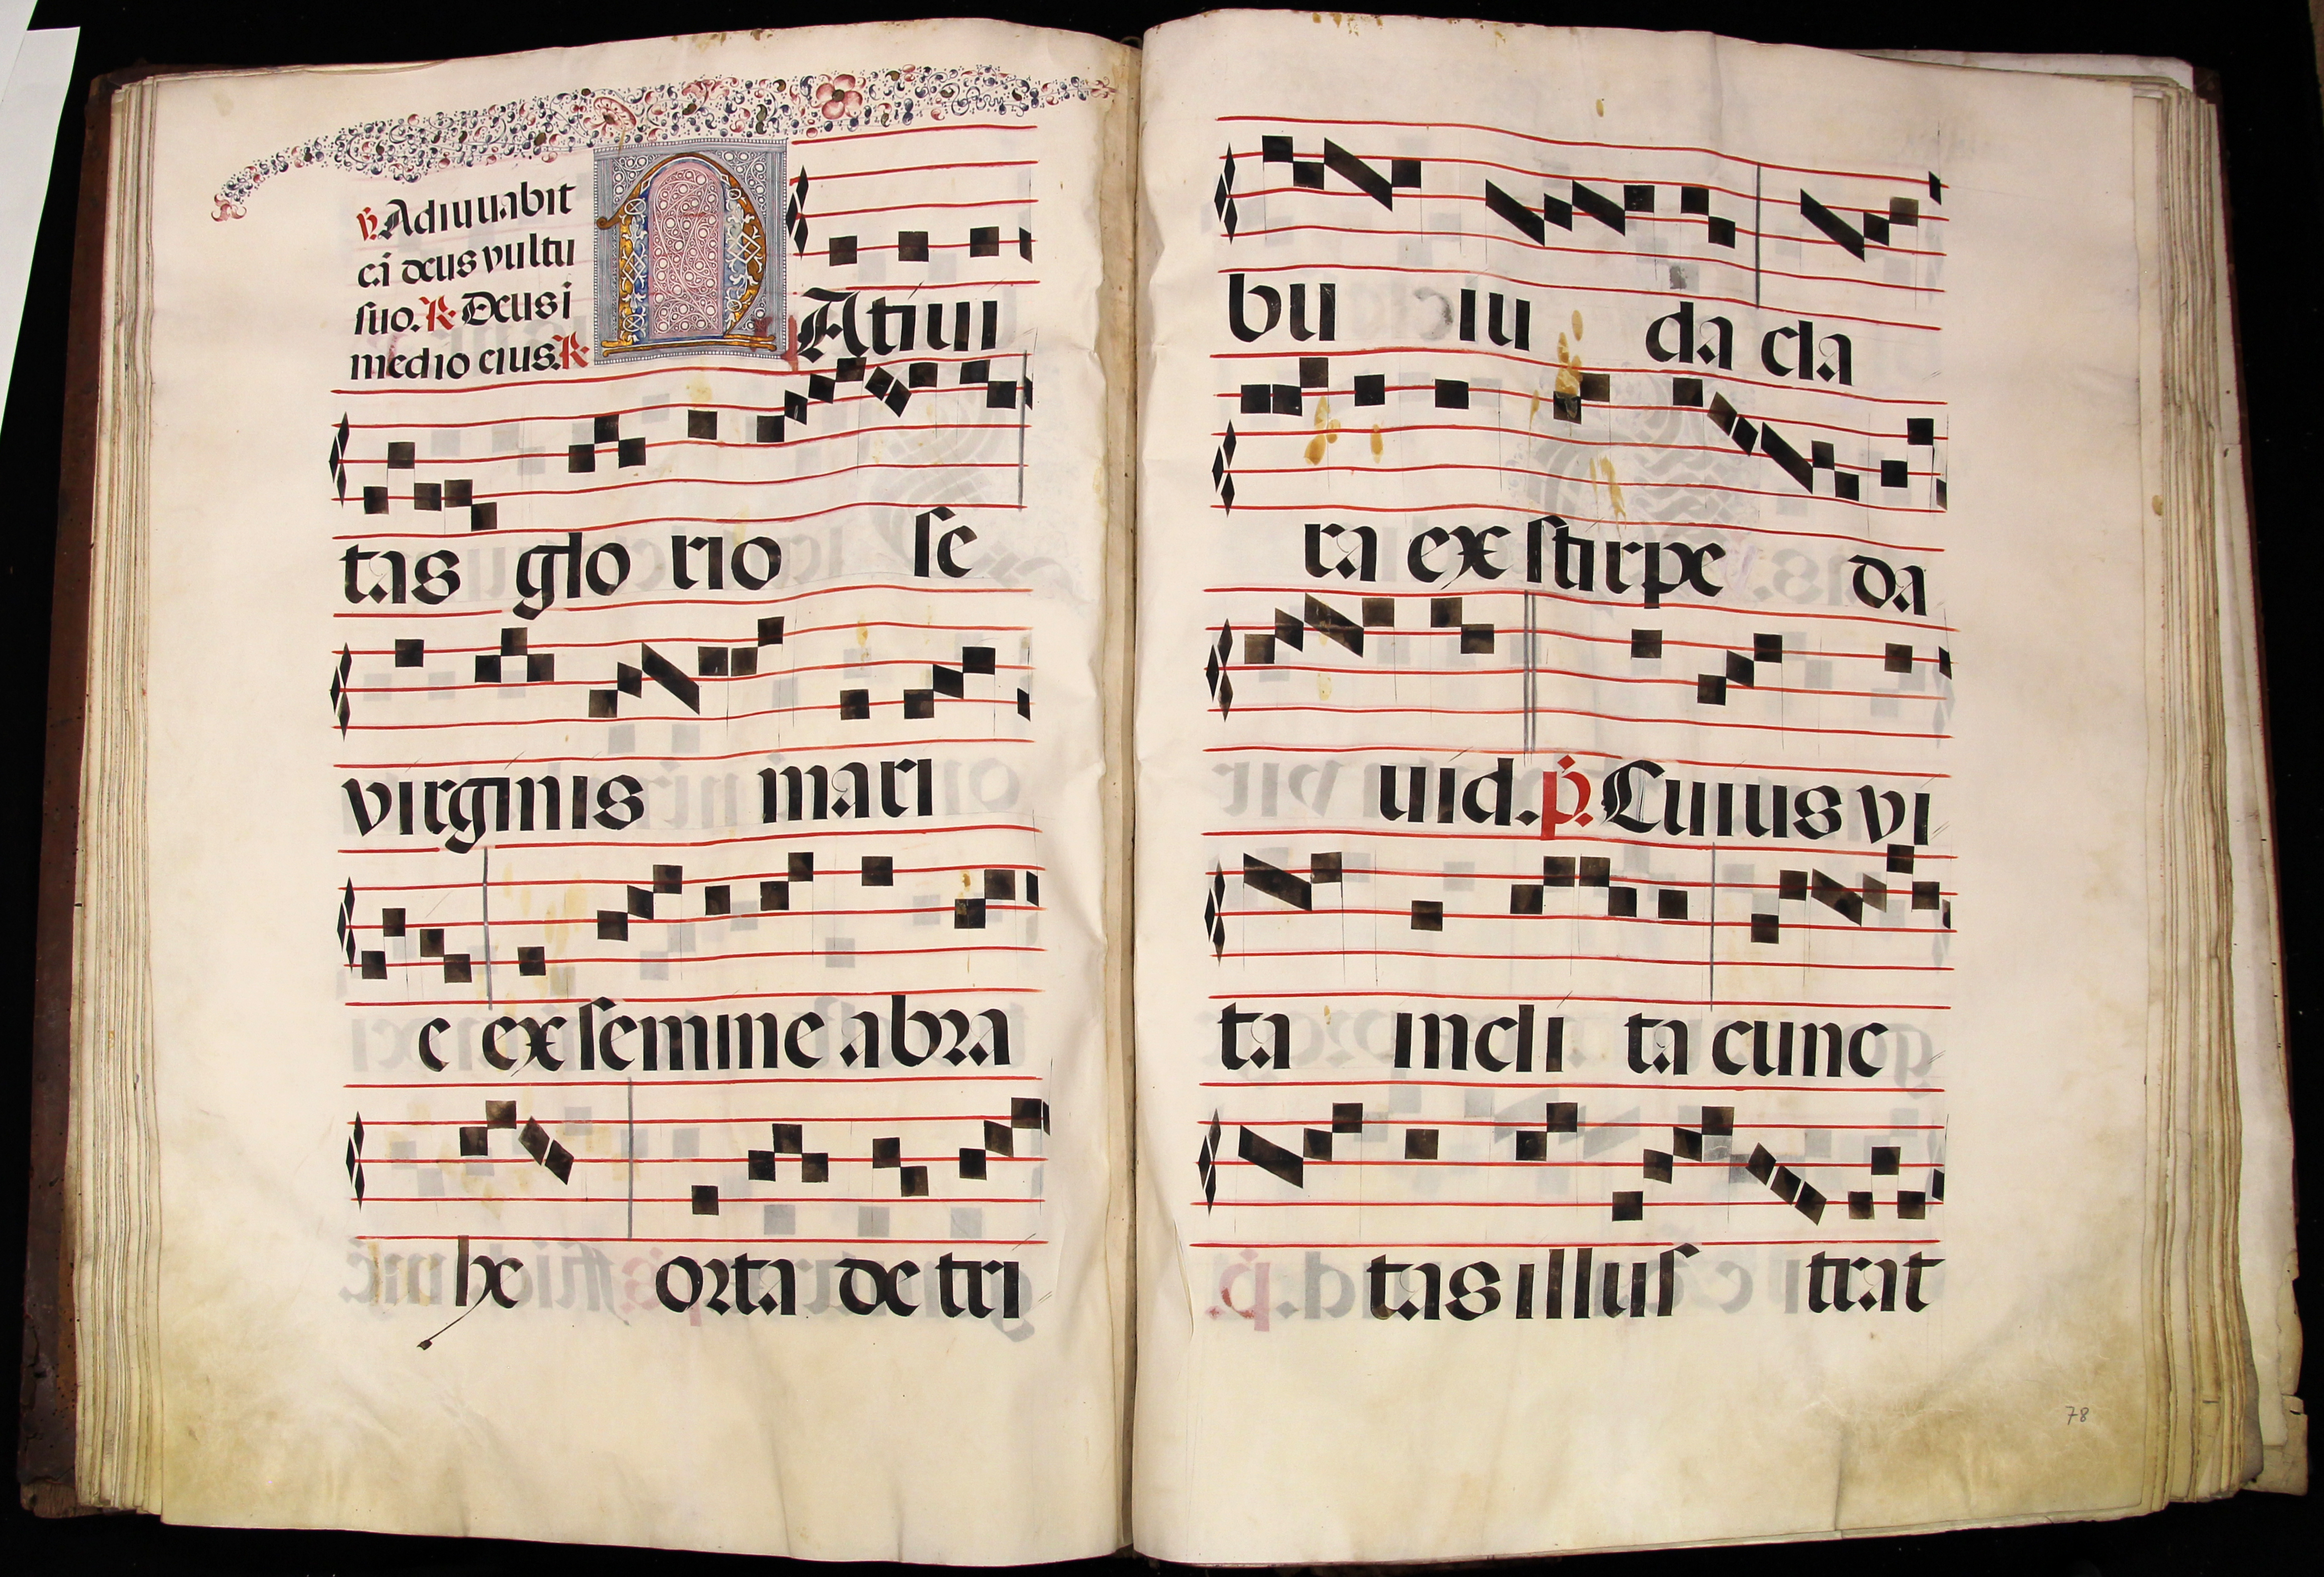 ℣. Adiuuabit
eā deus vultu
suo. ℟ Deus i
medio eius. ℟
NAtiui
tas glo rio se
virginis mari
e ex semine abra
he orta de tri
bu iu da cla
ra ex stirpe da
uid. ℣. Cuius vi
ta incli ta cunc
tas illus trat
78